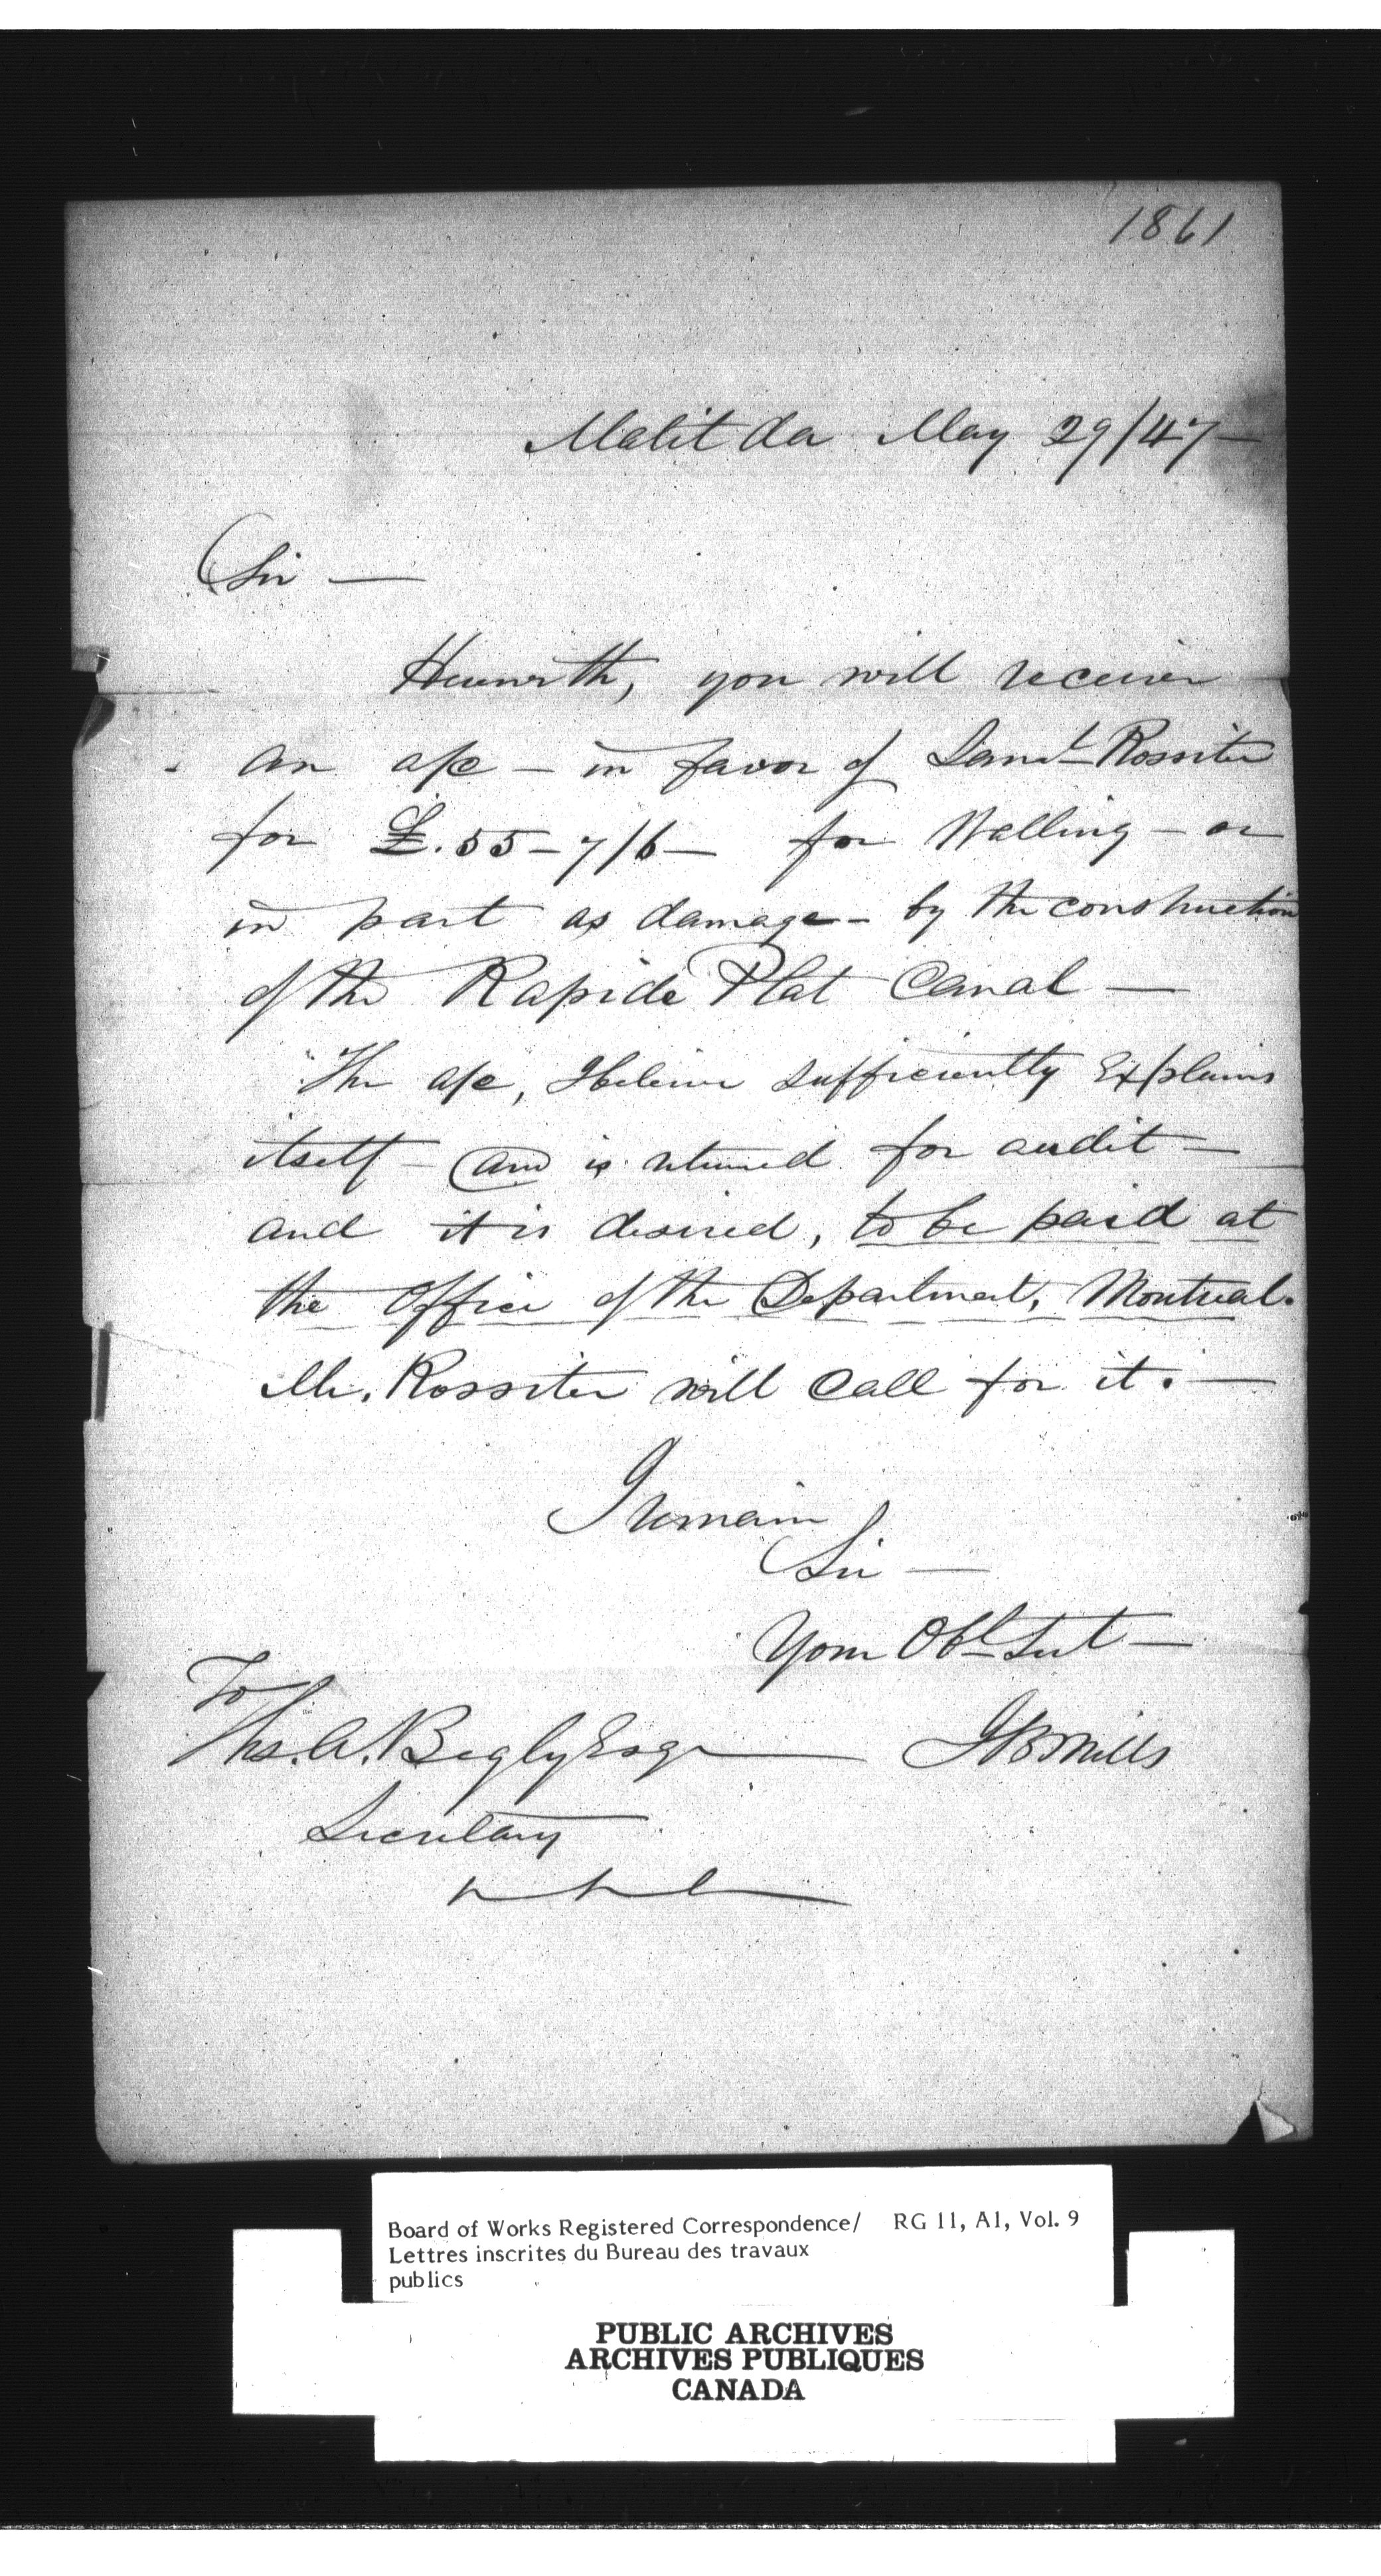 1861
Matilda May 29/47 —
Sir —
Herewith, you will receive
an a/c — in favor of Saml Rossiter
for £. 55 - 7/6 — for Walling — or
in part as damage - by the construction
of the Rapide Plat Canal —
The a/c, I believe sufficiently Explains
itself — and is returned for audit —
and it is desired, to be paid at
the Office of the Department, Montreal.
Mr. Rossiter will Call for it. —
I remain
Sir —
Your Obt Svt —
To
Ths. A. Begly Esqr — J B Mills
Secretary
Board of Works Registered Correspondence/ RG 11, A1, Vol. 9
Lettres inscrites du Bureau des travaux
publics
PUBLIC ARCHIVES
ARCHIVES PUBLIQUES
CANADA